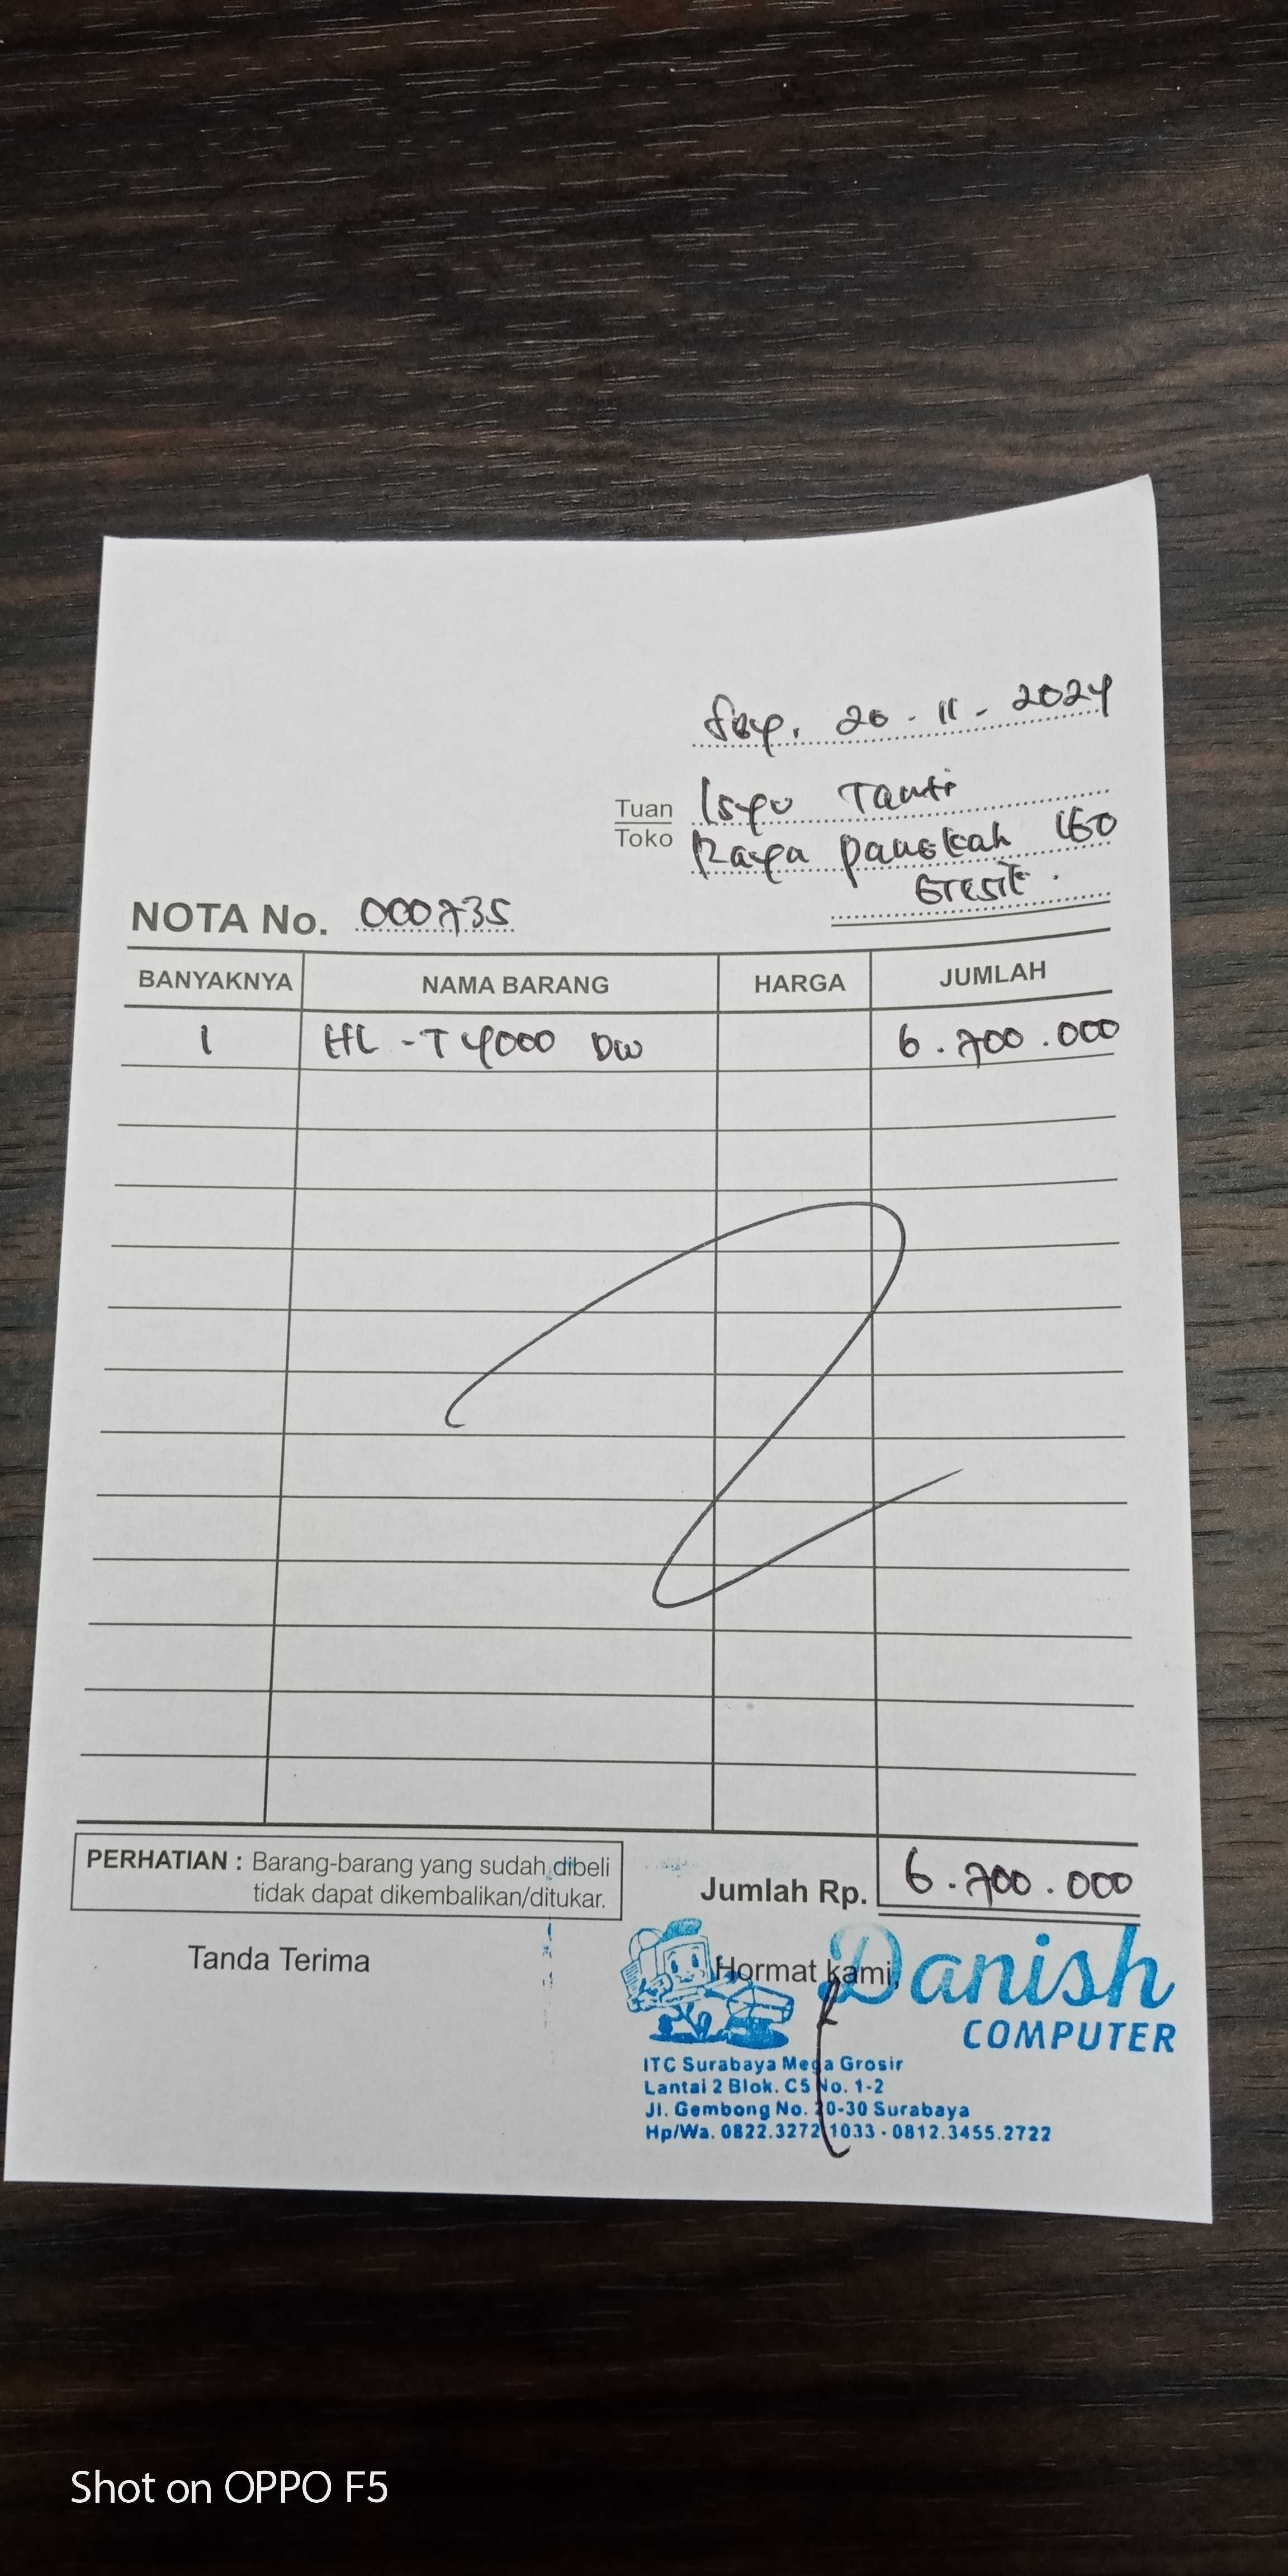 Sby. 26 - 11 - 2024
Tuan Ispu Tanti
Toko Raya Pangkah 160
Gresik.
NOTA No. 000735
BANYAKNYA NAMA BARANG HARGA JUMLAH
1 HL - T4000 DW 6.700.000
PERHATIAN : Barang-barang yang sudah dibeli
tidak dapat dikembalikan/ditukar.
Jumlah Rp. 6.700.000
Tanda Terima
Hormat kami,
Danish
COMPUTER
ITC Surabaya Mega Grosir
Lantai 2 Blok. C5 No. 1-2
Jl. Gembong No. 20-30 Surabaya
Hp/Wa. 0822.3272.1033 - 0812.3455.2722
Shot on OPPO F5